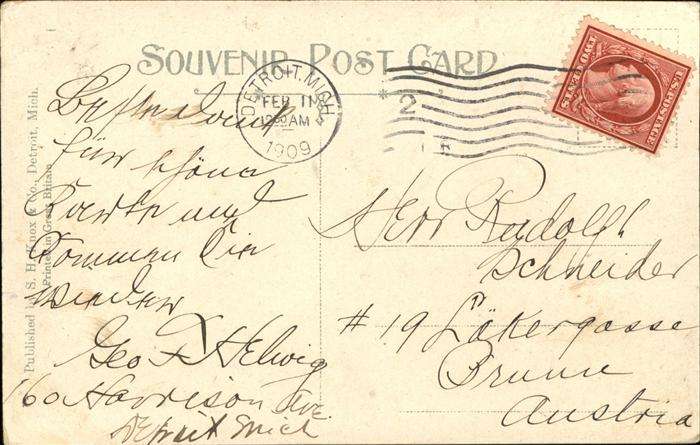 SOUVENIR POST CARD
DETROIT, MICH.
FEB 11
12 30 AM
1909
2
U.S. POSTAGE
TWO CENTS
Published by S. H. Knox & Co., Detroit, Mich.
Printed in Great Britain
Besten Dank
für schöne
Karte und
Kommen Sie
wieder
Geo F Helwig
160 Harrison Ave.
Detroit Mich
Herr Rudolph
Schneider
# 19 Läkergasse
Brunn
Austria